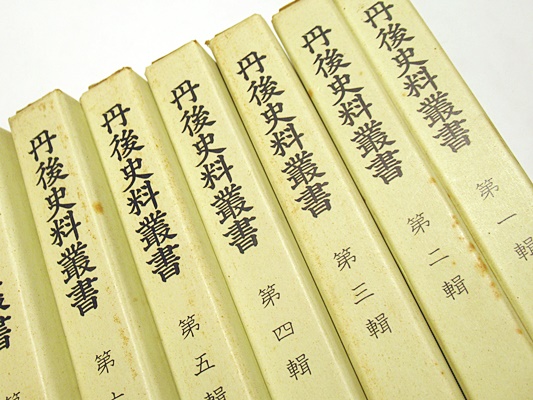 丹後史料叢書 第一輯
丹後史料叢書 第二輯
丹後史料叢書 第三輯
丹後史料叢書 第四輯
丹後史料叢書 第五輯
丹後史料叢書 第
叢書 第